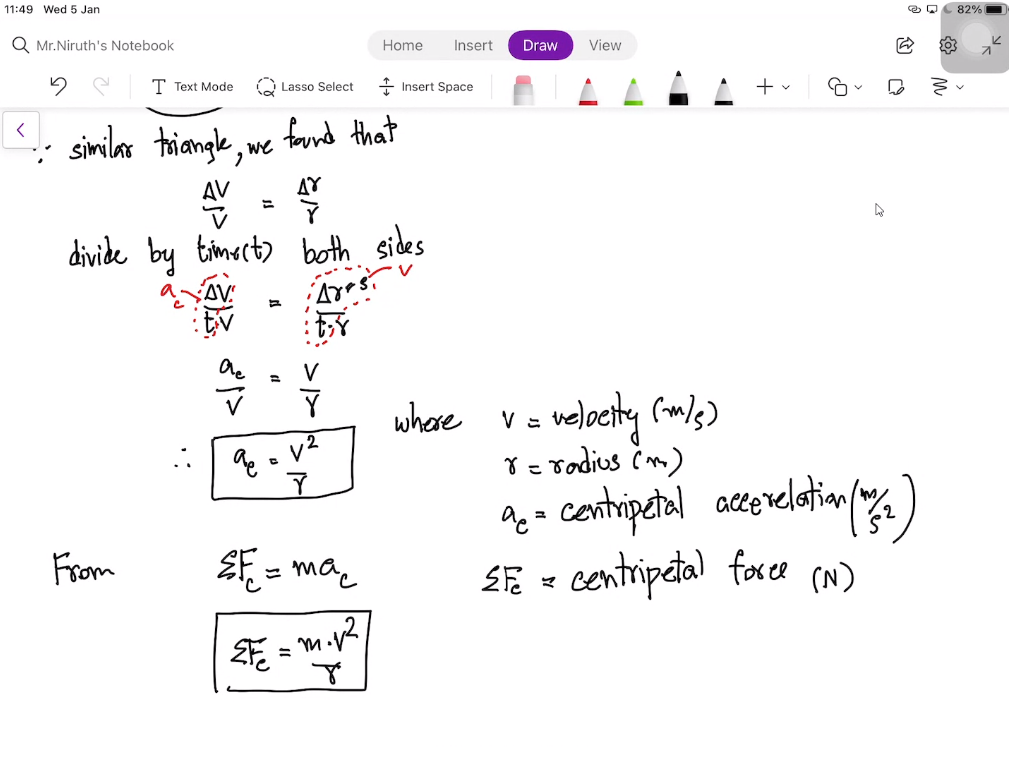 11:49 Wed 5 Jan
82%
Mr.Niruth's Notebook
Home Insert Draw View
Text Mode Lasso Select Insert Space
∵ similar triangle, we found that
ΔV/V = Δr/r
divide by time(t) both sides
a_c ΔV/t·V = Δr→s/t·r V
a_c/V = V/r
∴ a_c = V²/r
where v = velocity (m/s)
r = radius (m)
a_c = centripetal accerelation (m/s²)
From ΣF_c = ma_c
ΣF_c = centripetal force (N)
ΣF_c = m·V²/r